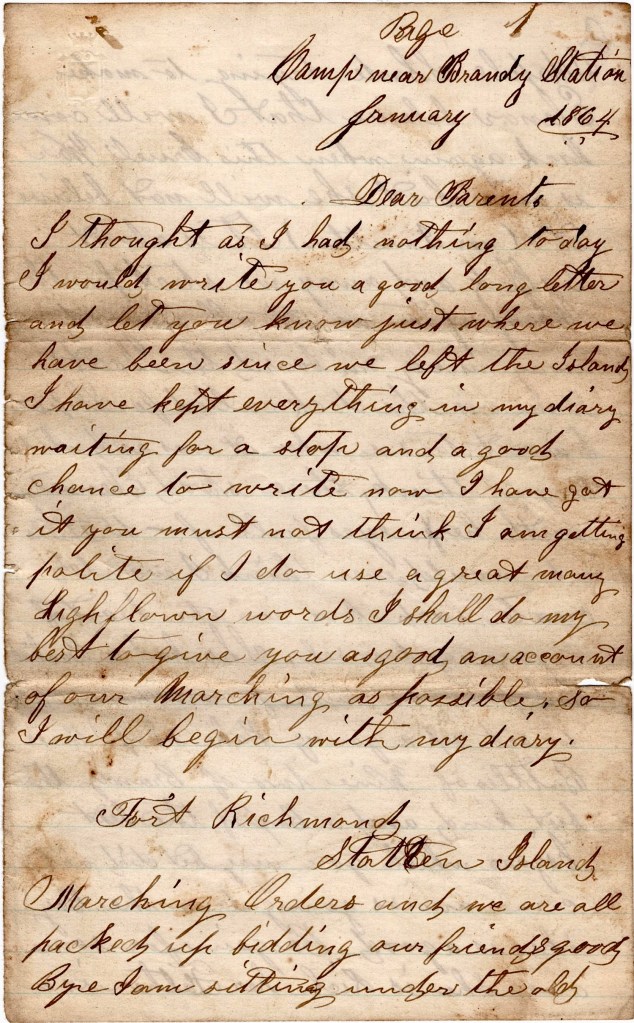 Page 1
Camp near Brandy Station
January 1864
Dear Parents
I thought as I had nothing to day
I would write you a good long letter
and let you know just where we
have been since we left the Island
I have kept everything in my diary
waiting for a stop and a good
chance to write now I have got
it you must not think I am getting
polite if I do use a great many
Highflown words I shall do my
best to give you as good an account
of our Marching as possible. so
I will begin with my diary.
Fort Richmond
Statten Island
Marching Orders and we are all
packed up bidding our friends good
Bye I am sitting under the old